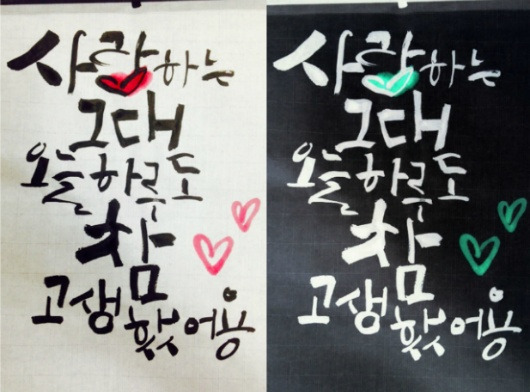 사랑하는
그대
오늘하루도
참
고생했어용
사랑하는
그대
오늘하루도
참
고생했어용